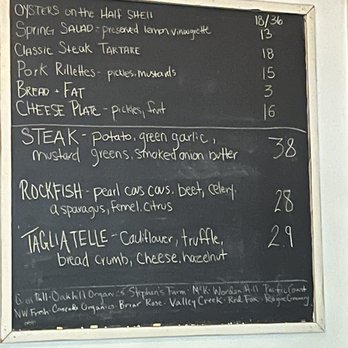 OYSTERS on the Half Shell 18/36
Spring Salad - preserved lemon vinaigrette 13
Classic Steak Tartare 18
Pork Rillettes - pickles, mustards 15
Bread + Fat 3
Cheese Plate - pickles, fruit 16
STEAK - potato, green garlic, 38
mustard greens, smoked onion butter
ROCKFISH - pearl cous cous, beet, celery, 28
asparagus, fennel, citrus
TAGLIATELLE - Cauliflower, truffle, 29
bread crumb, cheese, hazelnut
Oakhill Organics Stephens Farm Worden Hill Pacific Coast
NW Fresh Organics Briar Rose Valley Creek Red Fox